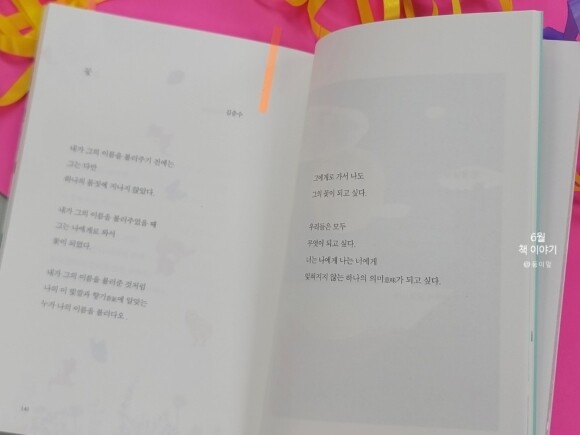 꽃
김춘수
내가 그의 이름을 불러주기 전에는
그는 다만
하나의 몸짓에 지나지 않았다.
내가 그의 이름을 불러주었을 때
그는 나에게로 와서
꽃이 되었다.
내가 그의 이름을 불러준 것처럼
나의 이 빛깔과 향기에 알맞는
누가 나의 이름을 불러다오
그에게로 가서 나도
그의 꽃이 되고 싶다.
우리들은 모두
무엇이 되고 싶다.
너는 나에게 나는 너에게
잊혀지지 않는 하나의 의미가 되고 싶다.
6월
책 이야기